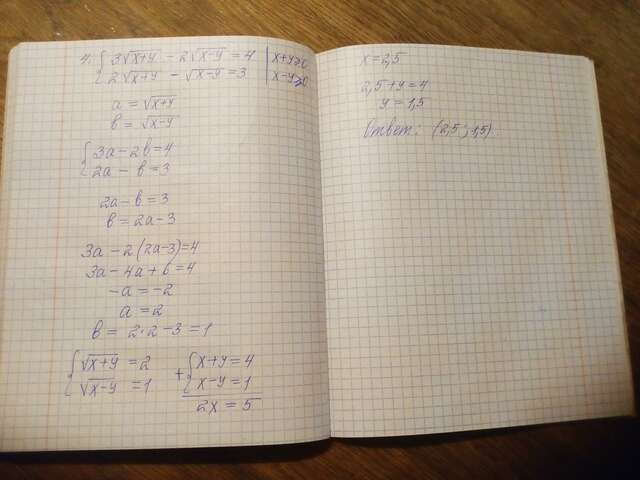 4. { 3√x+y - 2√x-y = 4 | x+y≥0
2√x+y - √x-y = 3 | x-y≥0
a = √x+y
b = √x-y
{ 3a - 2b = 4
2a - b = 3
2a - b = 3
b = 2a - 3
3a - 2(2a-3) = 4
3a - 4a + 6 = 4
-a = -2
a = 2
b = 2·2 - 3 = 1
{ √x+y = 2
√x-y = 1
+ { x+y = 4
x-y = 1
2x = 5
x = 2,5
2,5 + y = 4
y = 1,5
Ответ: (2,5; 1,5).